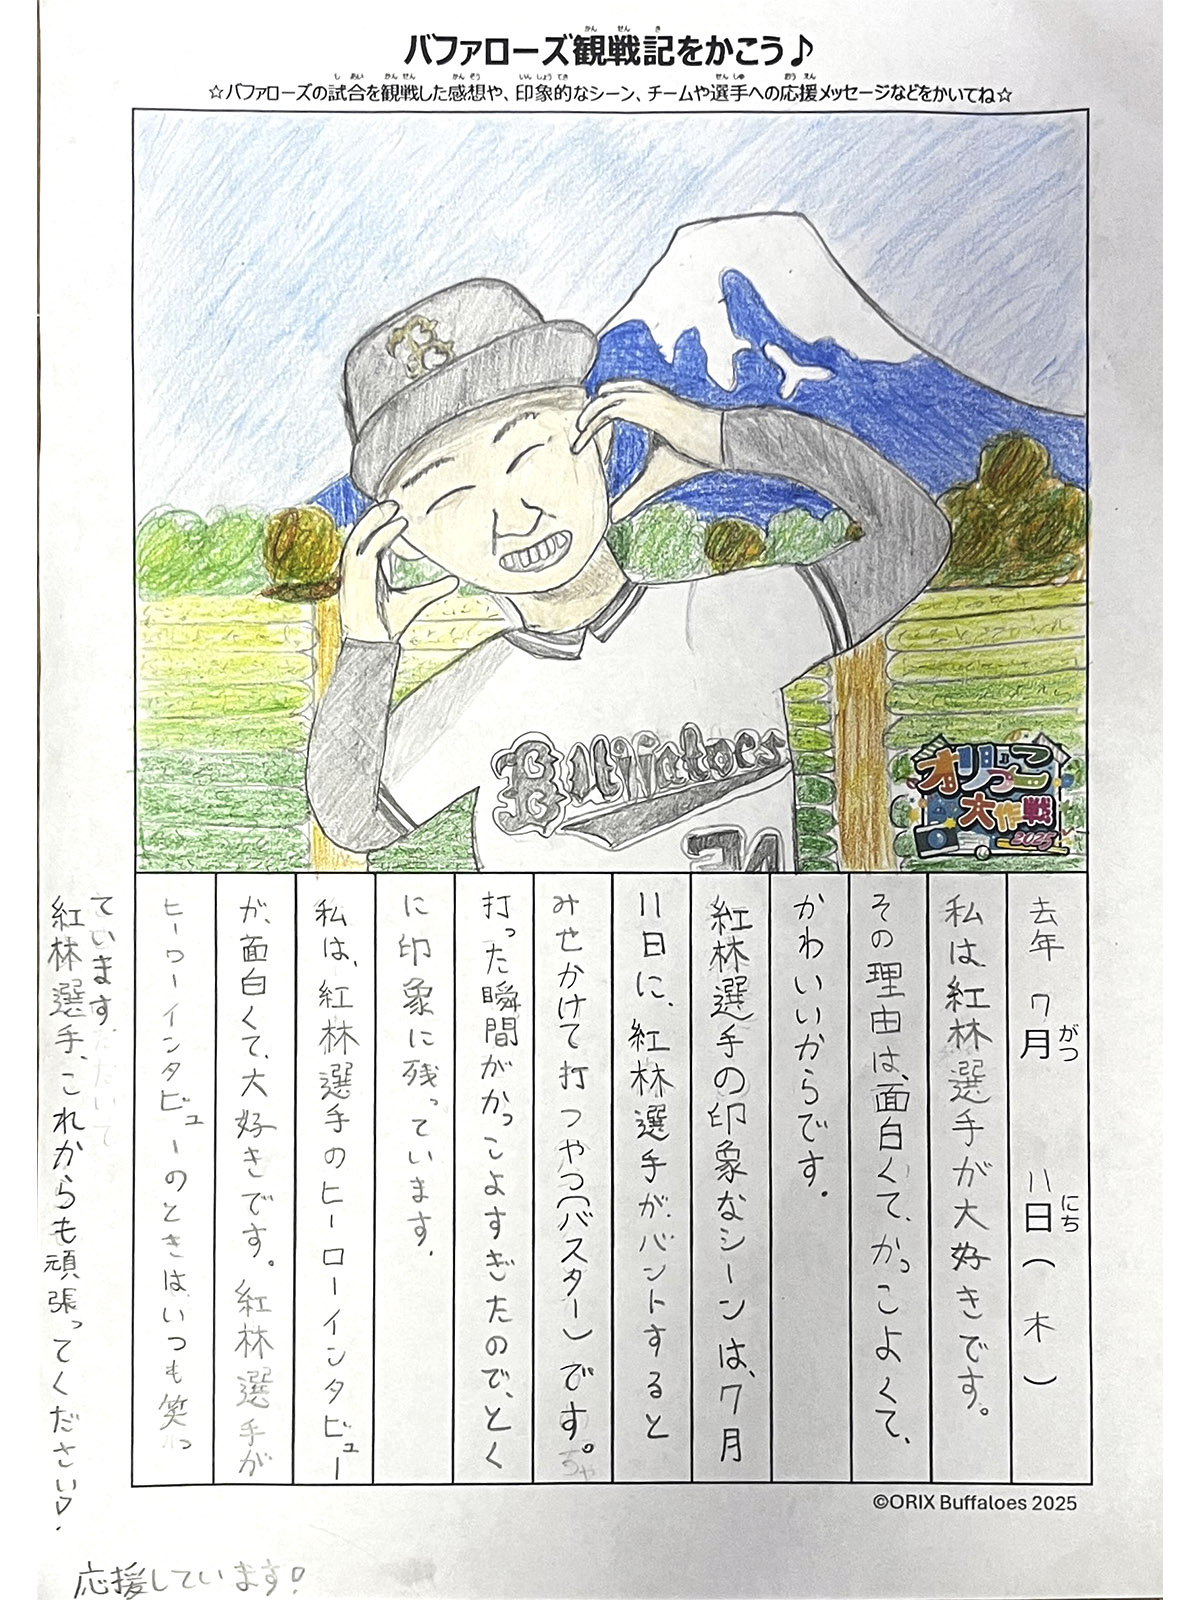 バファローズ観戦記をかこう♪
☆バファローズの試合を観戦した感想や、印象的なシーン、チームや選手への応援メッセージなどをかいてね☆
B
Buffaloes
24
オリっこ
大作戦
2025
去年 7月 11日(木)
私は紅林選手が大好きです。
その理由は、面白くて、かっこよくて、
かわいいからです。
紅林選手の印象なシーンは、7月
11日に、紅林選手が、バントすると
みせかけて打つやつ(バスター)です。
打った瞬間がかっこよすぎたので、とく
に印象に残っています。
私は、紅林選手のヒーローインタビュー
が、面白くて、大好きです。紅林選手が
ヒーローインタビューのときは、いつも笑っ
ています。
紅林選手、これからも頑張ってください♡.
応援しています!
©ORIX Buffaloes 2025